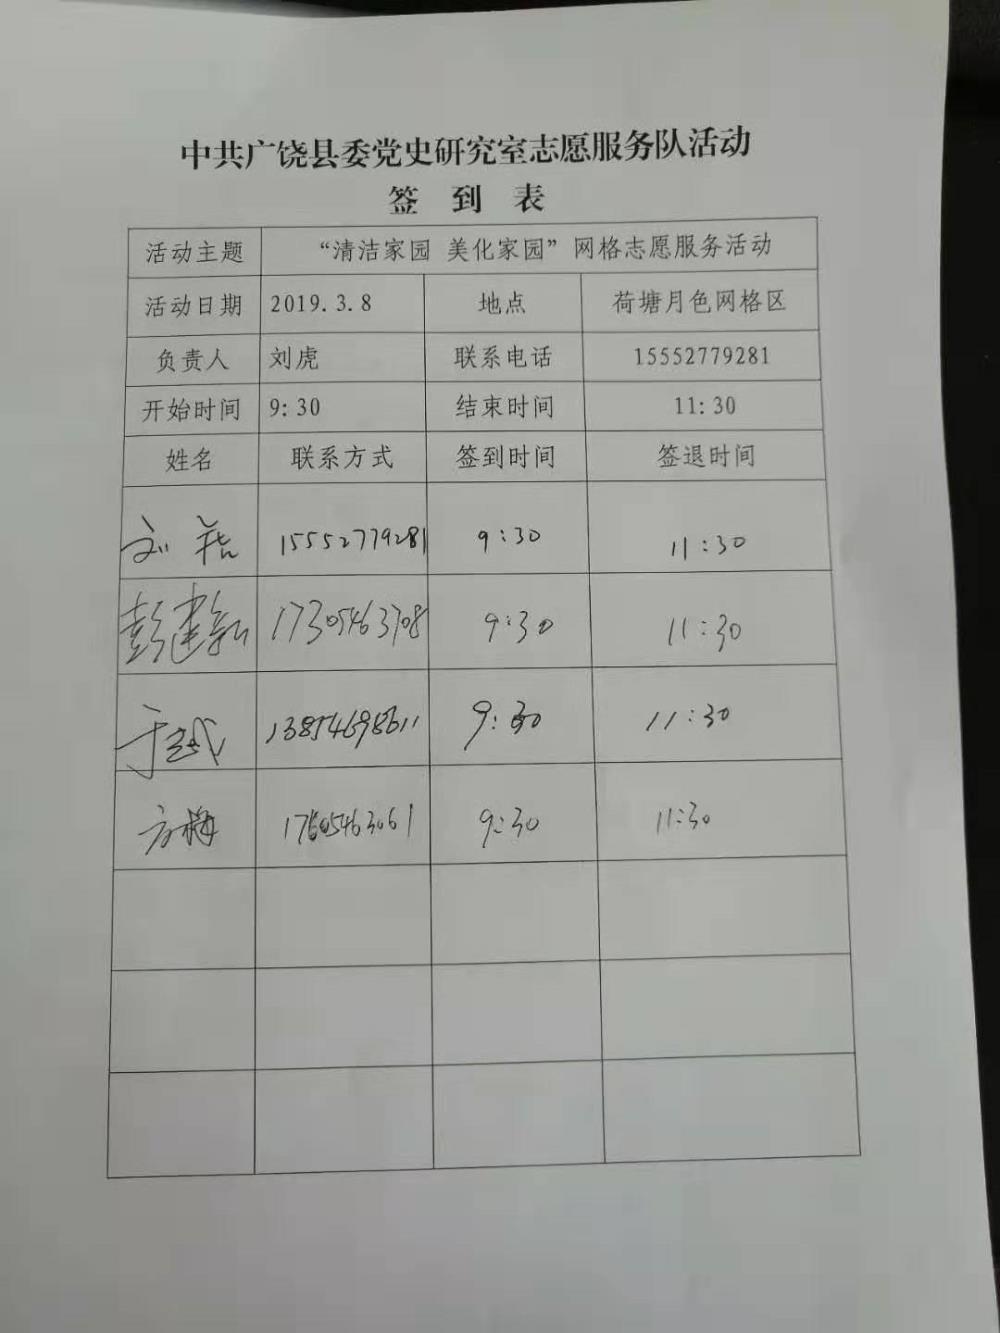 中共广饶县委党史研究室志愿服务队活动
签 到 表
活动主题 “清洁家园 美化家园”网格志愿服务活动
活动日期 2019.3.8 地点 荷塘月色网格区
负责人 刘虎 联系电话 15552779281
开始时间 9:30 结束时间 11:30
姓名 联系方式 签到时间 签退时间
刘 15552779281 9:30 11:30
彭建新 17305463708 9:30 11:30
于越 13854698611 9:30 11:30
方梅 17605463061 9:30 11:30